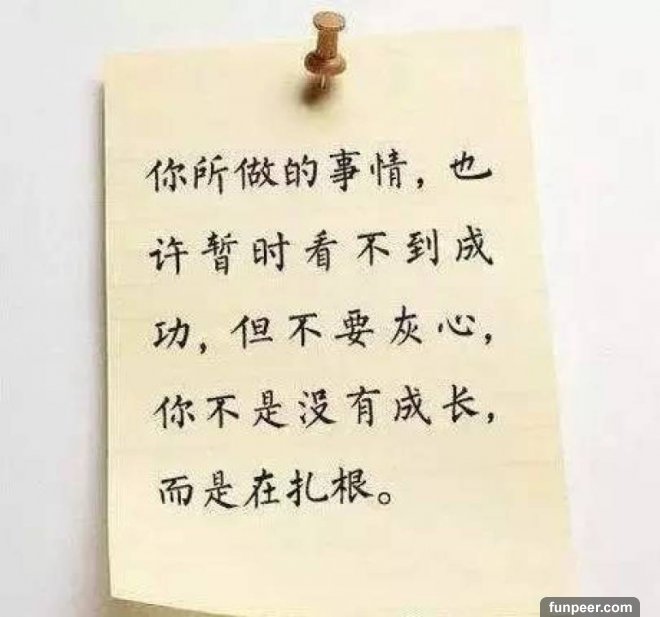 你所做的事情，也
许暂时看不到成
功，但不要灰心，
你不是没有成长，
而是在扎根。
funpeer.com